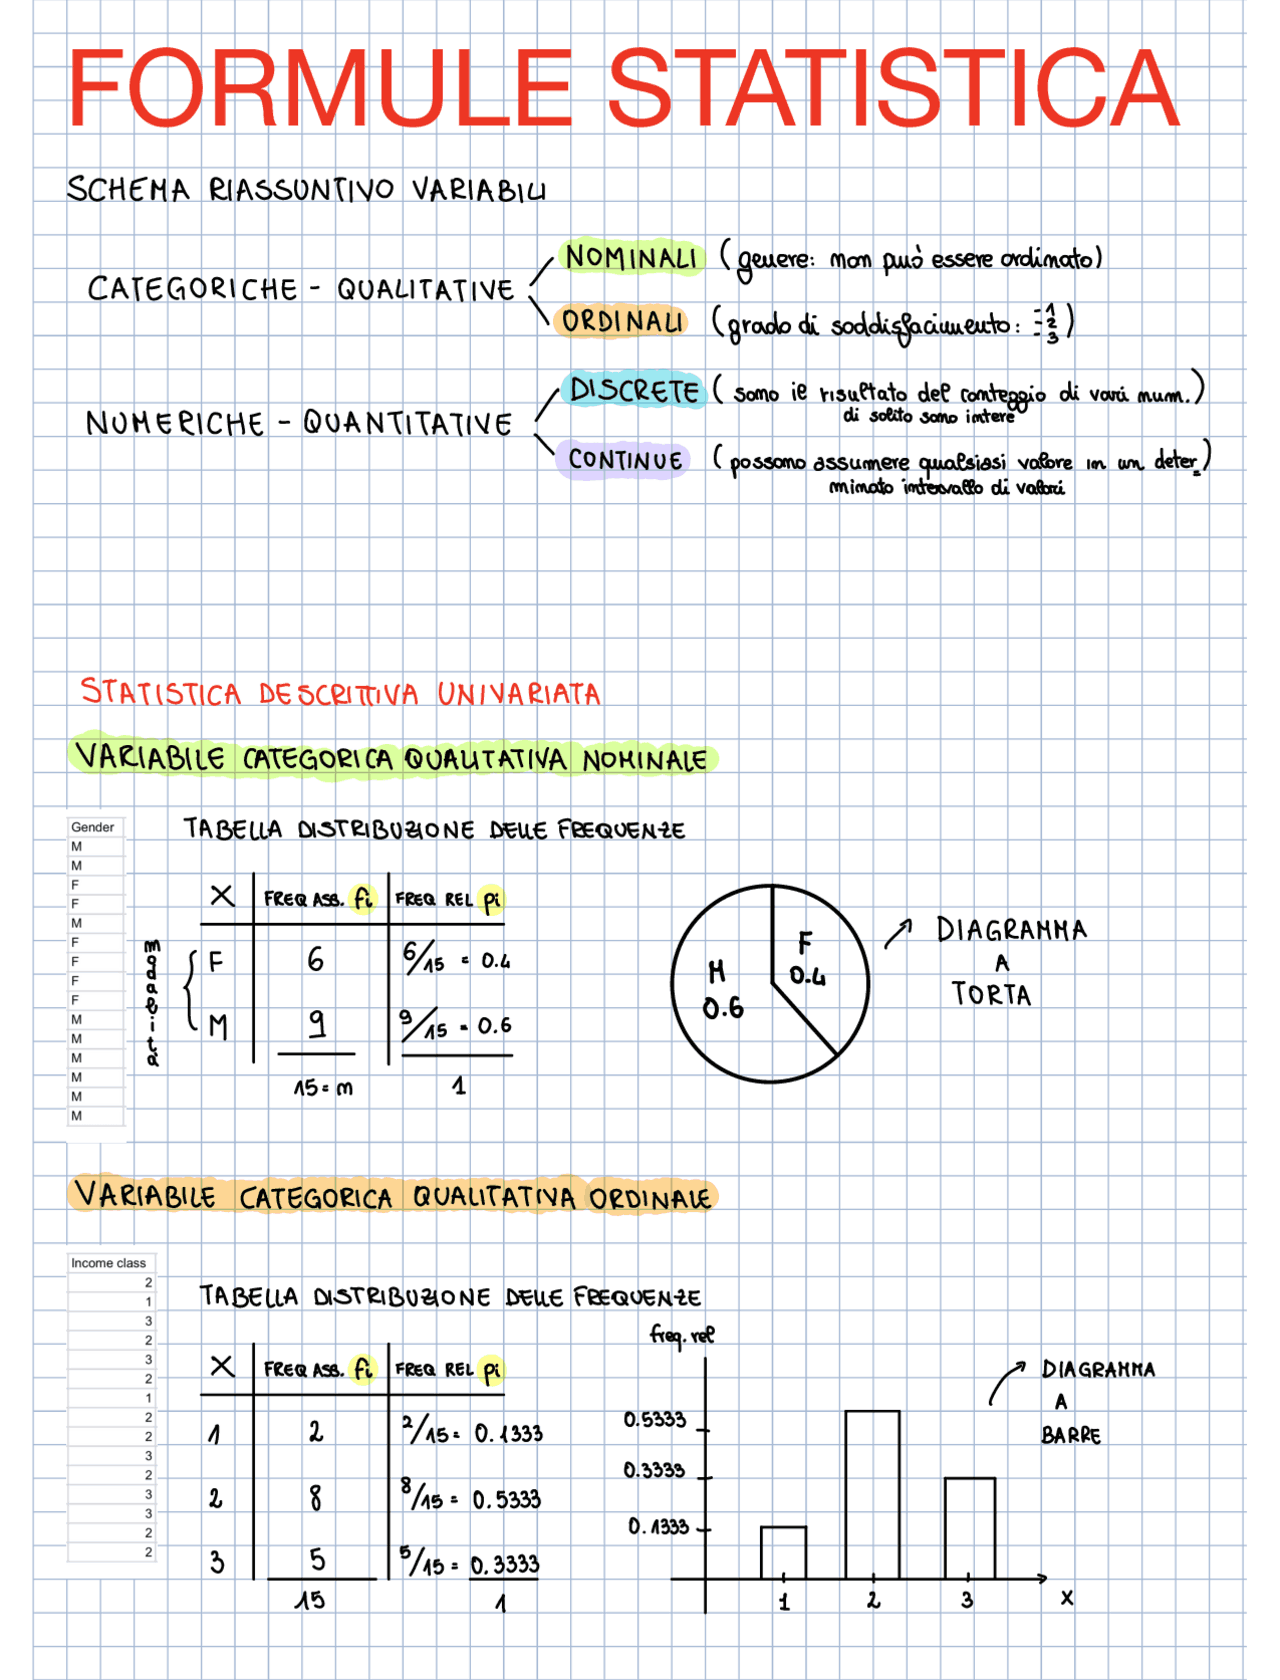 FORMULE STATISTICA
SCHEMA RIASSUNTIVO VARIABILI
CATEGORICHE - QUALITATIVE
NOMINALI (genere: non può essere ordinato)
ORDINALI (grado di soddisfacimento: -1 -2 -3)
NUMERICHE - QUANTITATIVE
DISCRETE (sono il risultato del conteggio di vari num.)
di solito sono intere
CONTINUE (possono assumere qualsiasi valore in un deter
minato intervallo di valori
STATISTICA DESCRITTIVA UNIVARIATA
VARIABILE CATEGORICA QUALITATIVA NOMINALE
Gender
M
M
F
F
M
F
F
F
F
M
M
M
M
M
M
TABELLA DISTRIBUZIONE DELLE FREQUENZE
modalità
X FREQ ASS. fi FREQ REL pi
F 6 6/15 = 0.4
M 9 9/15 = 0.6
15 = m 1
M 0.6
F 0.4
DIAGRAMMA
A
TORTA
VARIABILE CATEGORICA QUALITATIVA ORDINALE
Income class
2
1
3
2
3
2
1
2
2
3
2
3
3
2
2
TABELLA DISTRIBUZIONE DELLE FREQUENZE
X FREQ ASS. fi FREQ REL pi
1 2 2/15 = 0.1333
2 8 8/15 = 0.5333
3 5 5/15 = 0.3333
15 1
freq. rel
0.5333
0.3333
0.1333
1 2 3 X
DIAGRAMMA
A
BARRE